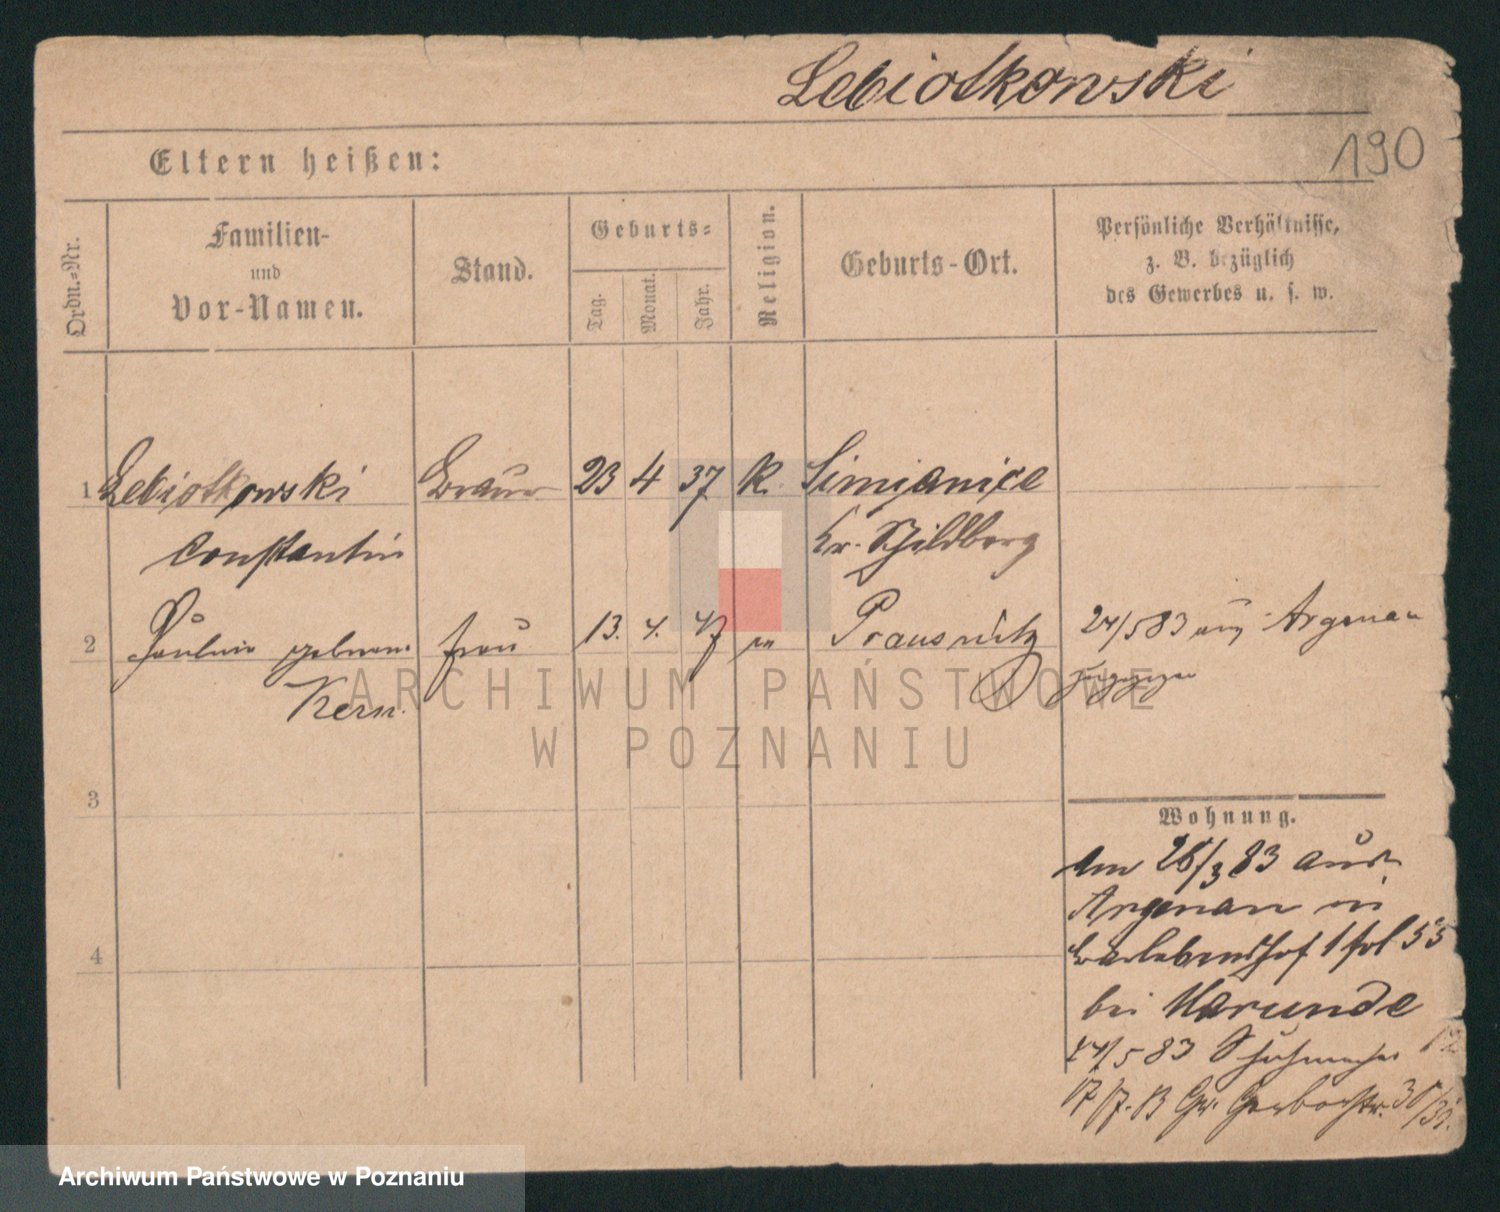 Lebiotkowski
190
Eltern heißen:
Ordn.-Nr.
Familien-
und
Vor-Namen.
Stand.
Geburts-
Tag.
Monat.
Jahr.
Religion.
Geburts-Ort.
Persönliche Verhältnisse,
z. B. bezüglich
des Gewerbes u. s. w.
1 Lebiotkowski 23 4 37 K. Simianice
Constantin Kr. Schildberg
2 geborene Frau 13. 4. 47 Prausnitz 24/5 83 aus Argenau
Kern. zugezogen
3
Wohnung.
Am 26/3 83 aus
Argenau in
4
bei Marunde
24/5 83 Schuhmacher 12
17/7. 83 Gr. Gerberstr.
ARCHIWUM PAŃSTWOWE
W POZNANIU
Archiwum Państwowe w Poznaniu